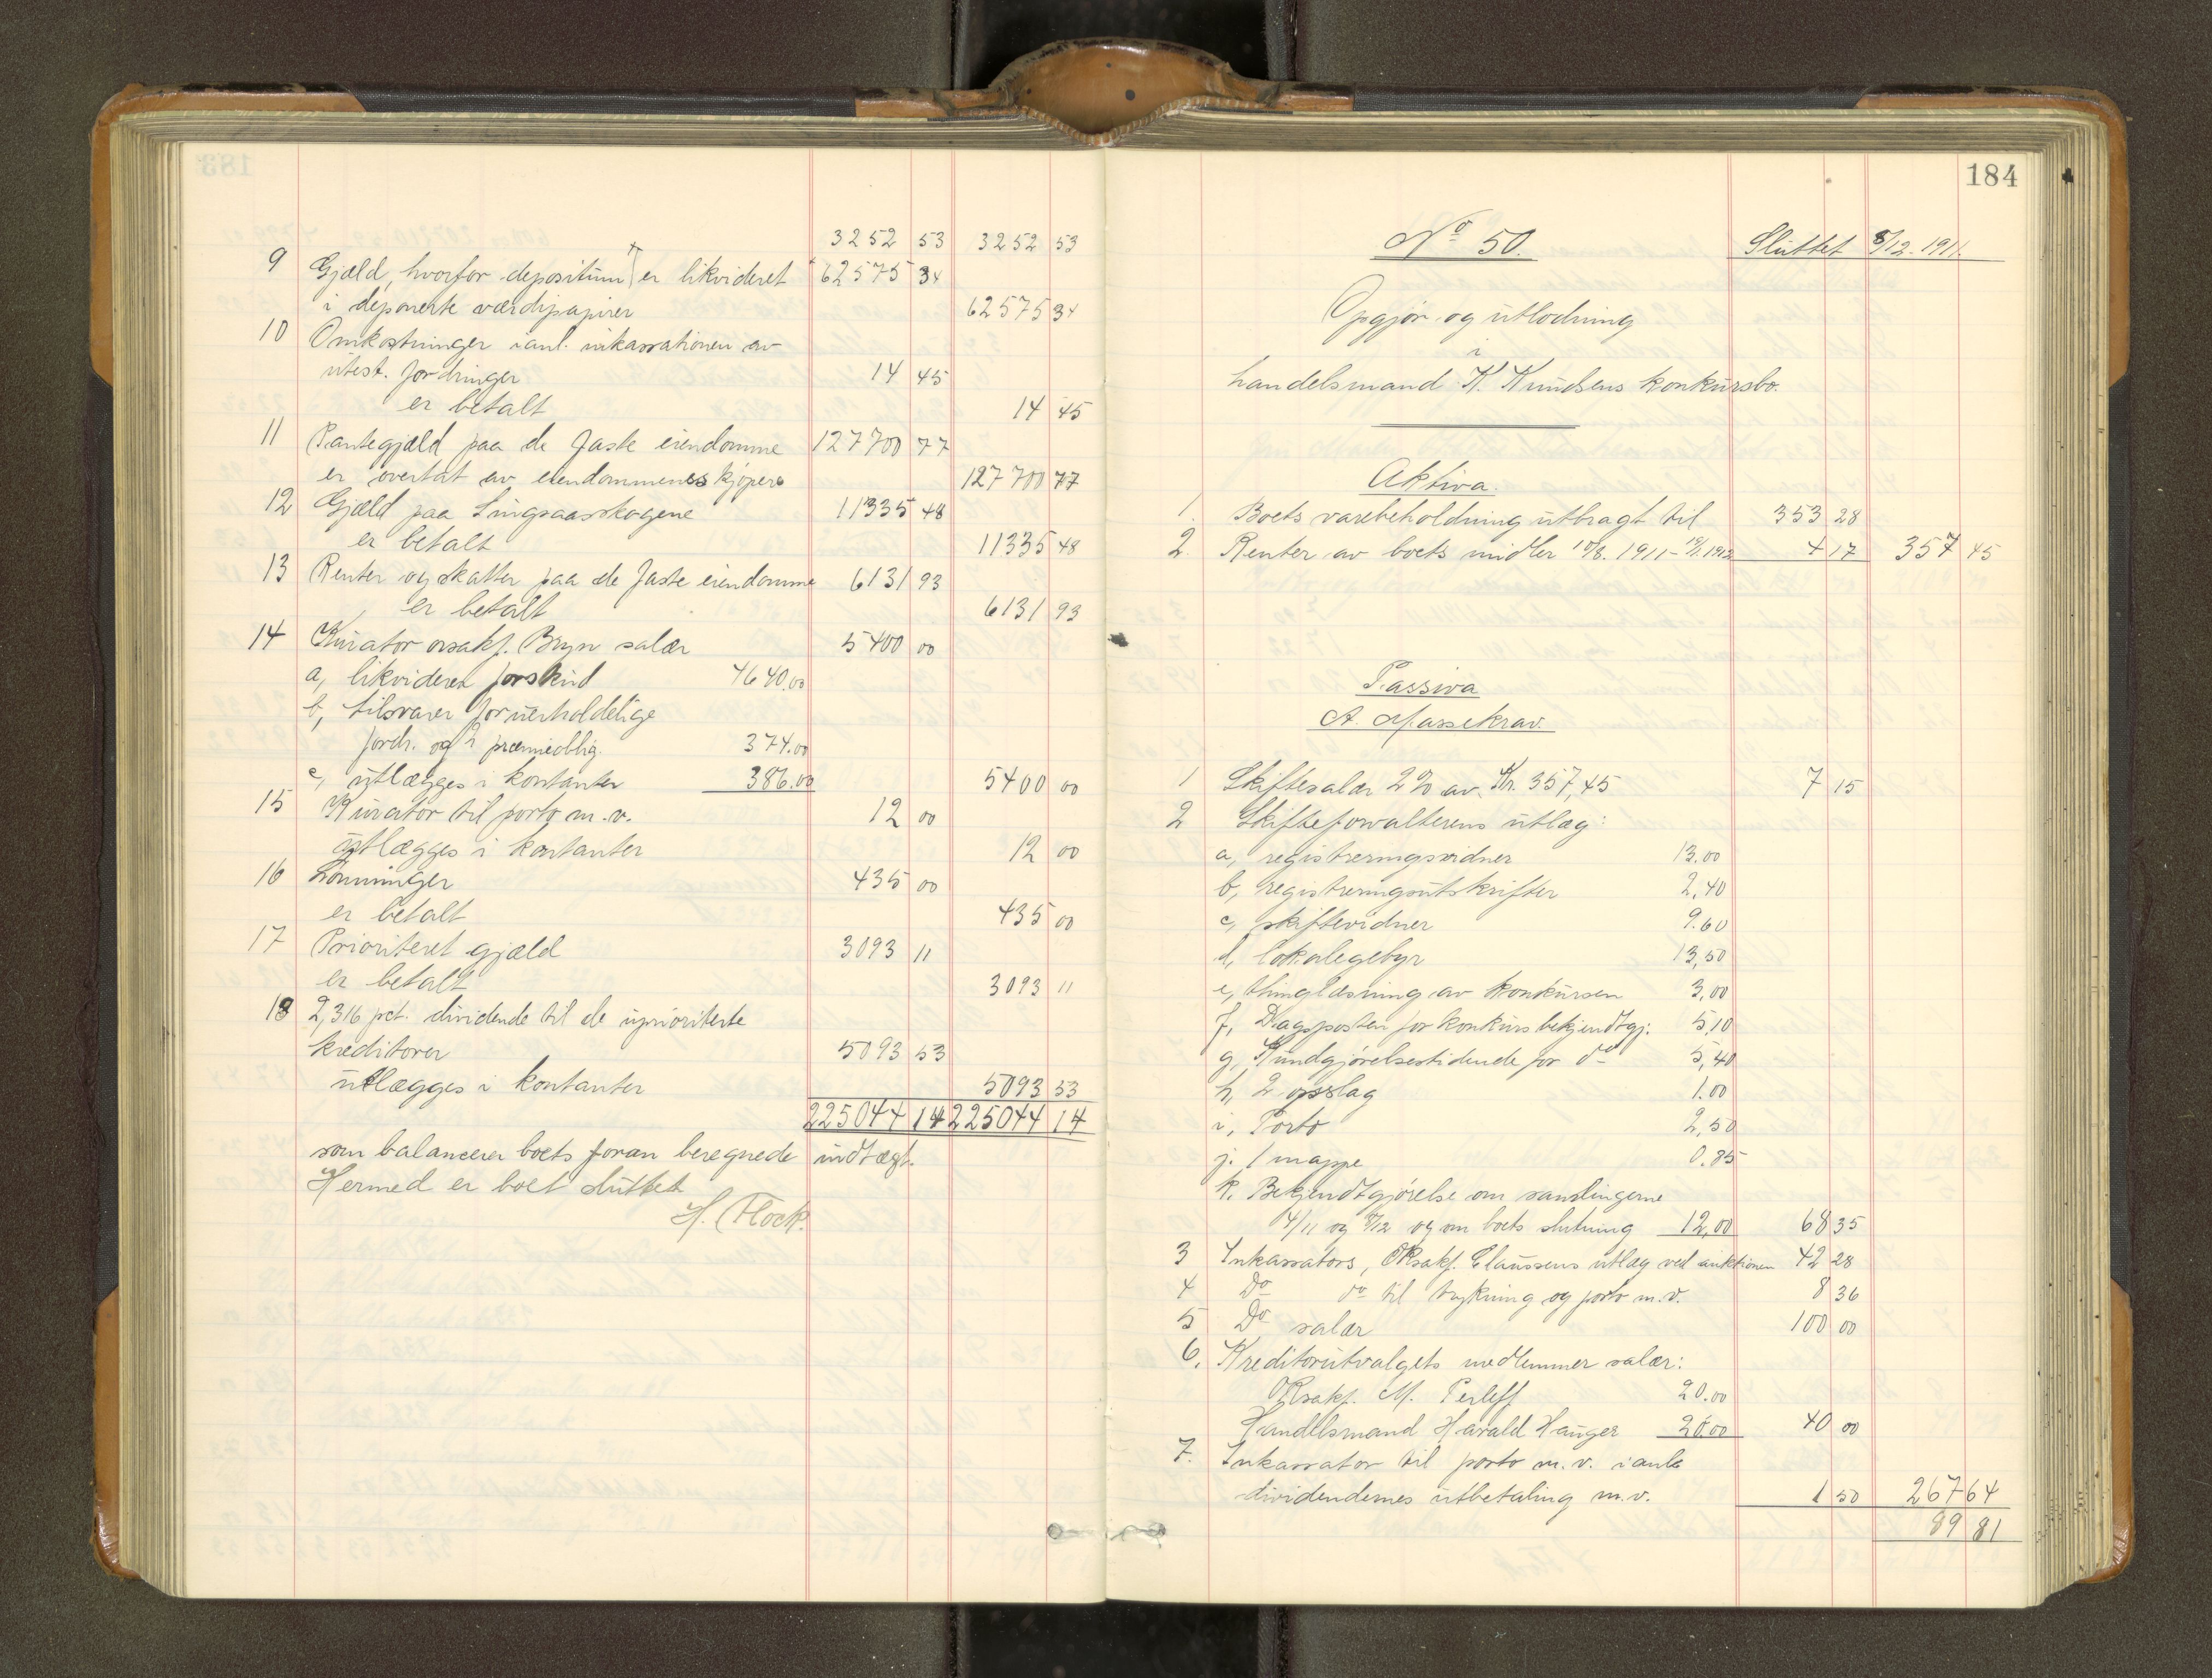 183
3252 53 3252 53
9 Gjæld, hvorfor depositum er likvideret 62575 34
i deponerte værdipapirer 62575 34
10 Omkostninger i anl. inkassationen av
utest. fordringer 14 45
er betalt 14 45
11 Pantegjæld paa de faste eiendomme 127700 77
er overtat av eiendommenes kjøpere 127700 77
12 Gjæld paa Singsaasskogene 11335 48
er betalt 11335 48
13 Renter og skatter paa de faste eiendomme 6131 93
er betalt 6131 93
14 Kurator orsakf. Bryn salær 5400 00
a, likvideret forskud 4640.00
b, tilsvarer for uerholdelige
fordr. og 2 præmieoblig. 374.00
c, utlægges i kontanter 386.00 5400 00
15 Kurator til porto m.v. 12 00
utlægges i kontanter 12 00
16 Lønninger 435 00
er betalt 435 00
17 Prioriteret gjæld 3093 11
er betalt 3093 11
18 2,316 pct. dividende til de uprioriterte
kreditorer 5093 53
utlægges i kontanter 5093 53
225044 14 225044 14
som balancerer boets foran beregnede indtægt.
Hermed er boet sluttet
H. Flock.
184
No 50. Sluttet 8/12. 1911.
Opgjør og utlodning
i
handelsmand K. Knudsens konkursbo.
Aktiva.
1. Boets varebeholdning utbragt til 353 28
2. Renter av boets midler 10/8. 1911 - 19/1. 1912 4 17 357 45
Passiva
A. Massekrav.
1 Skiftesalær 2% av Kr. 357,45 7 15
2 Skifteforvalterens utlæg:
a, registreringsvidner 13.00
b, registreringsutskrifter 2,40
c, skiftevidner 9.60
d, lokalegebyr 13,50
e, thinglæsning av konkursen 3,00
f, Dagsposten for konkursbekjendtgj. 5,10
g, Kundgjørelsestidende for do 5,40
h, 2 opslag 1.00
i, Porto 2,50
j. 1 mappe 0.85
k. Bekjendtgjørelse om samlingerne
4/11 og 8/12 og om boets slutning 12,00 68 35
3 Inkassators, ORsakf. Claussens utlæg ved auktionen 42 28
4 Do do til trykning og porto m.v. 8 36
5 Do salær 100 00
6. Kreditorutvalgets medlemmer salær:
ORsakf. M. Perleff 20.00
Handelsmand Harald Hauger 20.00 40 00
7. Inkassator til porto m.v. i anl.
dividendernes utbetaling m.v. 1 50 267 64
89 81